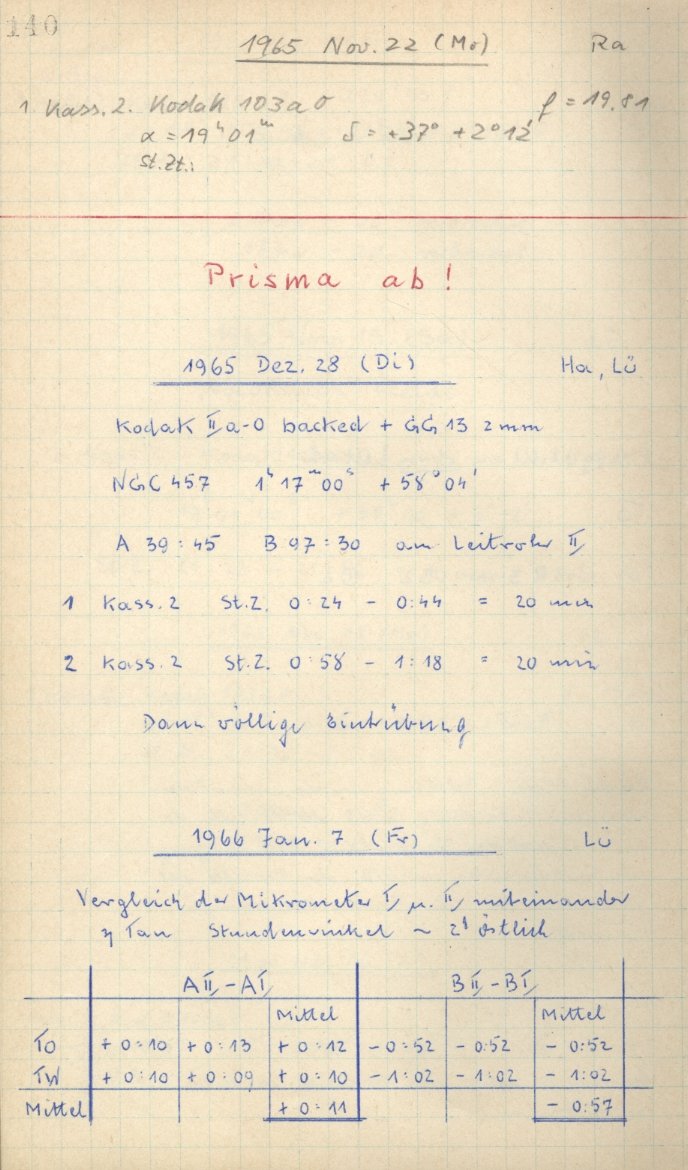 140
1965 Nov. 22 (Mo) Ra
1 Kass. 2. Kodak 103a0 f = 19.81
α = 19ʰ 01ᵐ δ = +37° +2°12'
St.Zt.:
Prisma ab!
1965 Dez. 28 (Di) Ha, Lü
Kodak IIa-O backed + GG 13 2 mm
NGC 457 1ʰ 17ᵐ 00ˢ + 58° 04'
A 39:45 B 97:30 am Leitrohr II
1 Kass. 2 St.Z. 0:24 - 0:44 = 20 min
2 Kass. 2 St.Z. 0:58 - 1:18 = 20 min
Dann völlige Eintrübung
1966 Jan. 7 (Fr) Lü
Vergleich der Mikrometer I u. II miteinander
η Tau Stundenwinkel ~ 2ʰ östlich
A II - A I B II - B I
Mittel Mittel
TO + 0:10 + 0:13 + 0:12 - 0:52 - 0:52 - 0:52
TW + 0:10 + 0:09 + 0:10 - 1:02 - 1:02 - 1:02
Mittel + 0:11 - 0:57